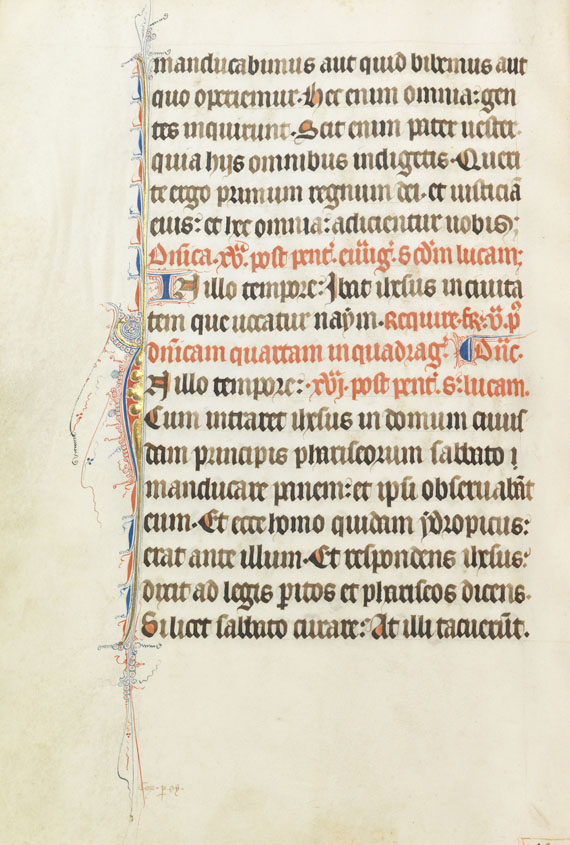 manducabimus aut quid bibemus aut
quo operiemur. Hec enim omnia: gen
tes inquirunt. Scit enim pater uester.
quia hijs omnibus indigetis. Queri
te ergo primum regnum dei. et iusticiã
eius: et hec omnia: adicientur uobis:
Dñica. xv. post pent. euãg. s cdm lucam:
In illo tempore: Ibat ihesus in ciuita
tem que uocatur naym. Require fr. v. p
dñicam quartam in quadrag. Dñc.
In illo tempore: xvj. post pent. s. lucam.
Cum intraret ihesus in domum cuius
dam principis phariseorum sabbato
manducare panem: et ipsi obseruabãt
eum. Et ecce homo quidam ydropicus:
erat ante illum. Et respondens ihesus:
dixit ad legis peritos et phariseos dicens.
Si licet sabbato curare: At illi tacuerũt.